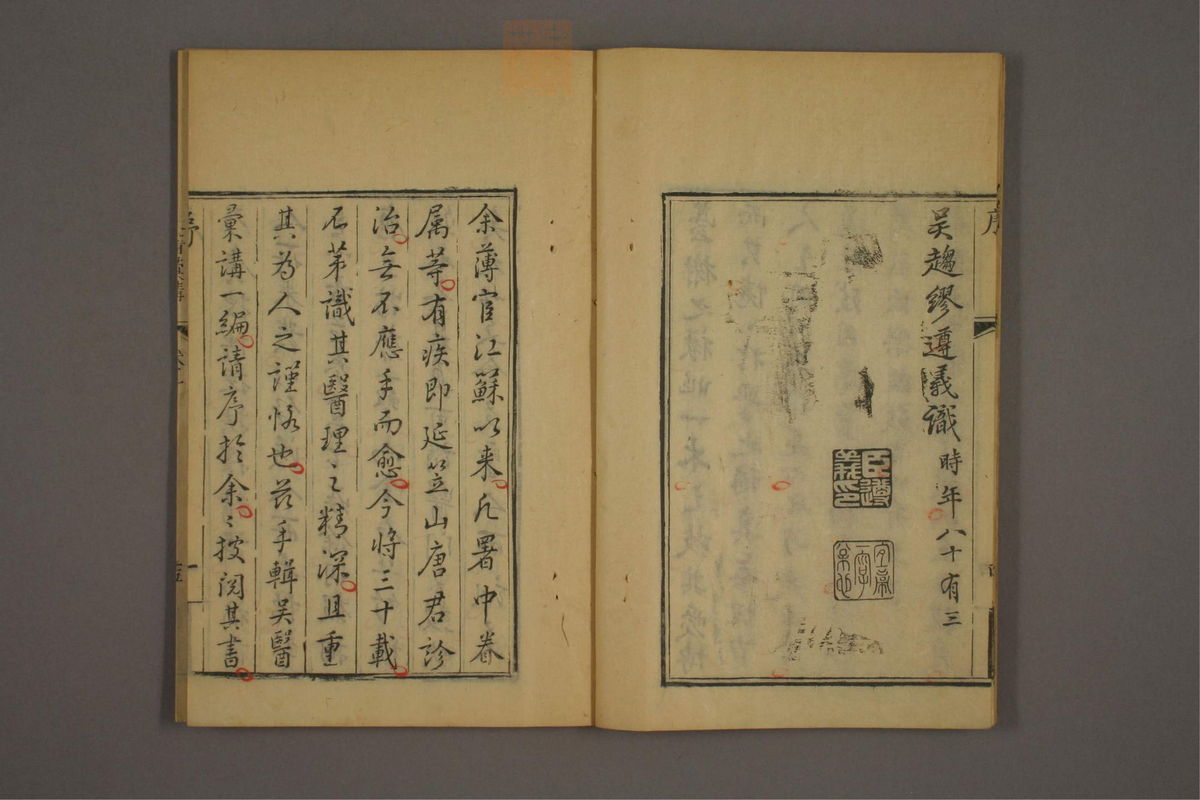 吳趨繆遵義識時年八十有三
臣遵義印
序
余薄宦江蘇以来凡署中眷
属等有疾即延笠山唐君診
治無不應手而愈今將三十載
不苐識其醫理之精深且重
其為人之謹恪也茲手輯吳醫
彙講一編請序於余〻披閱其書
序